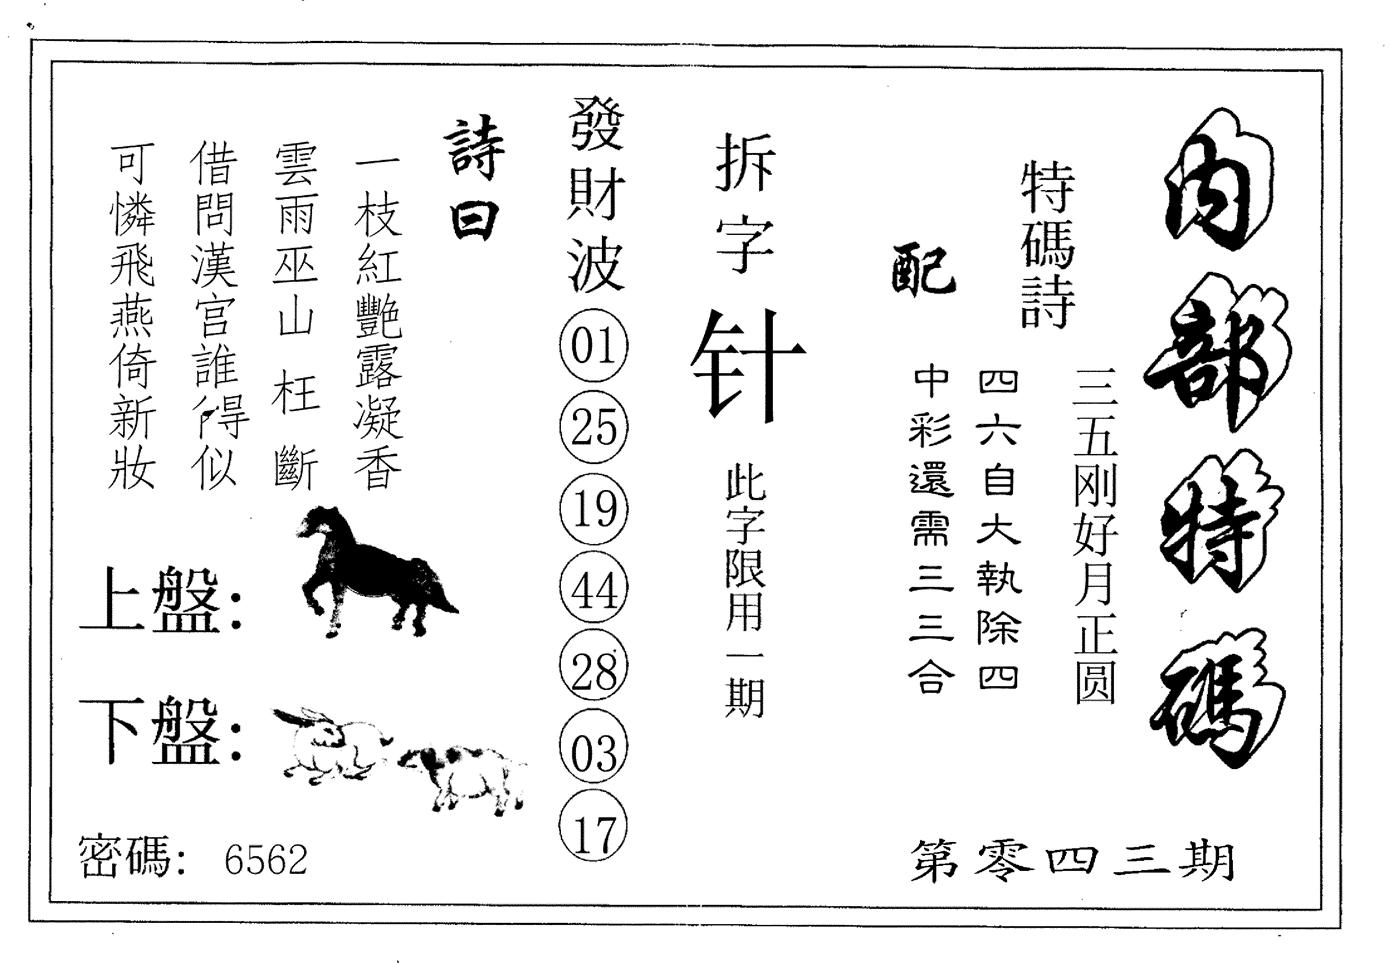 内部特碼
特碼詩
三五刚好月正圆
四六自大執除四
配
中彩還需三三合
拆字
针
此字限用一期
發財波
01
25
19
44
28
03
17
詩曰
一枝紅艷露凝香
雲雨巫山枉斷
借問漢官誰得似
可憐飛燕倚新妝
上盤:
下盤:
密碼: 6562
第零四三期